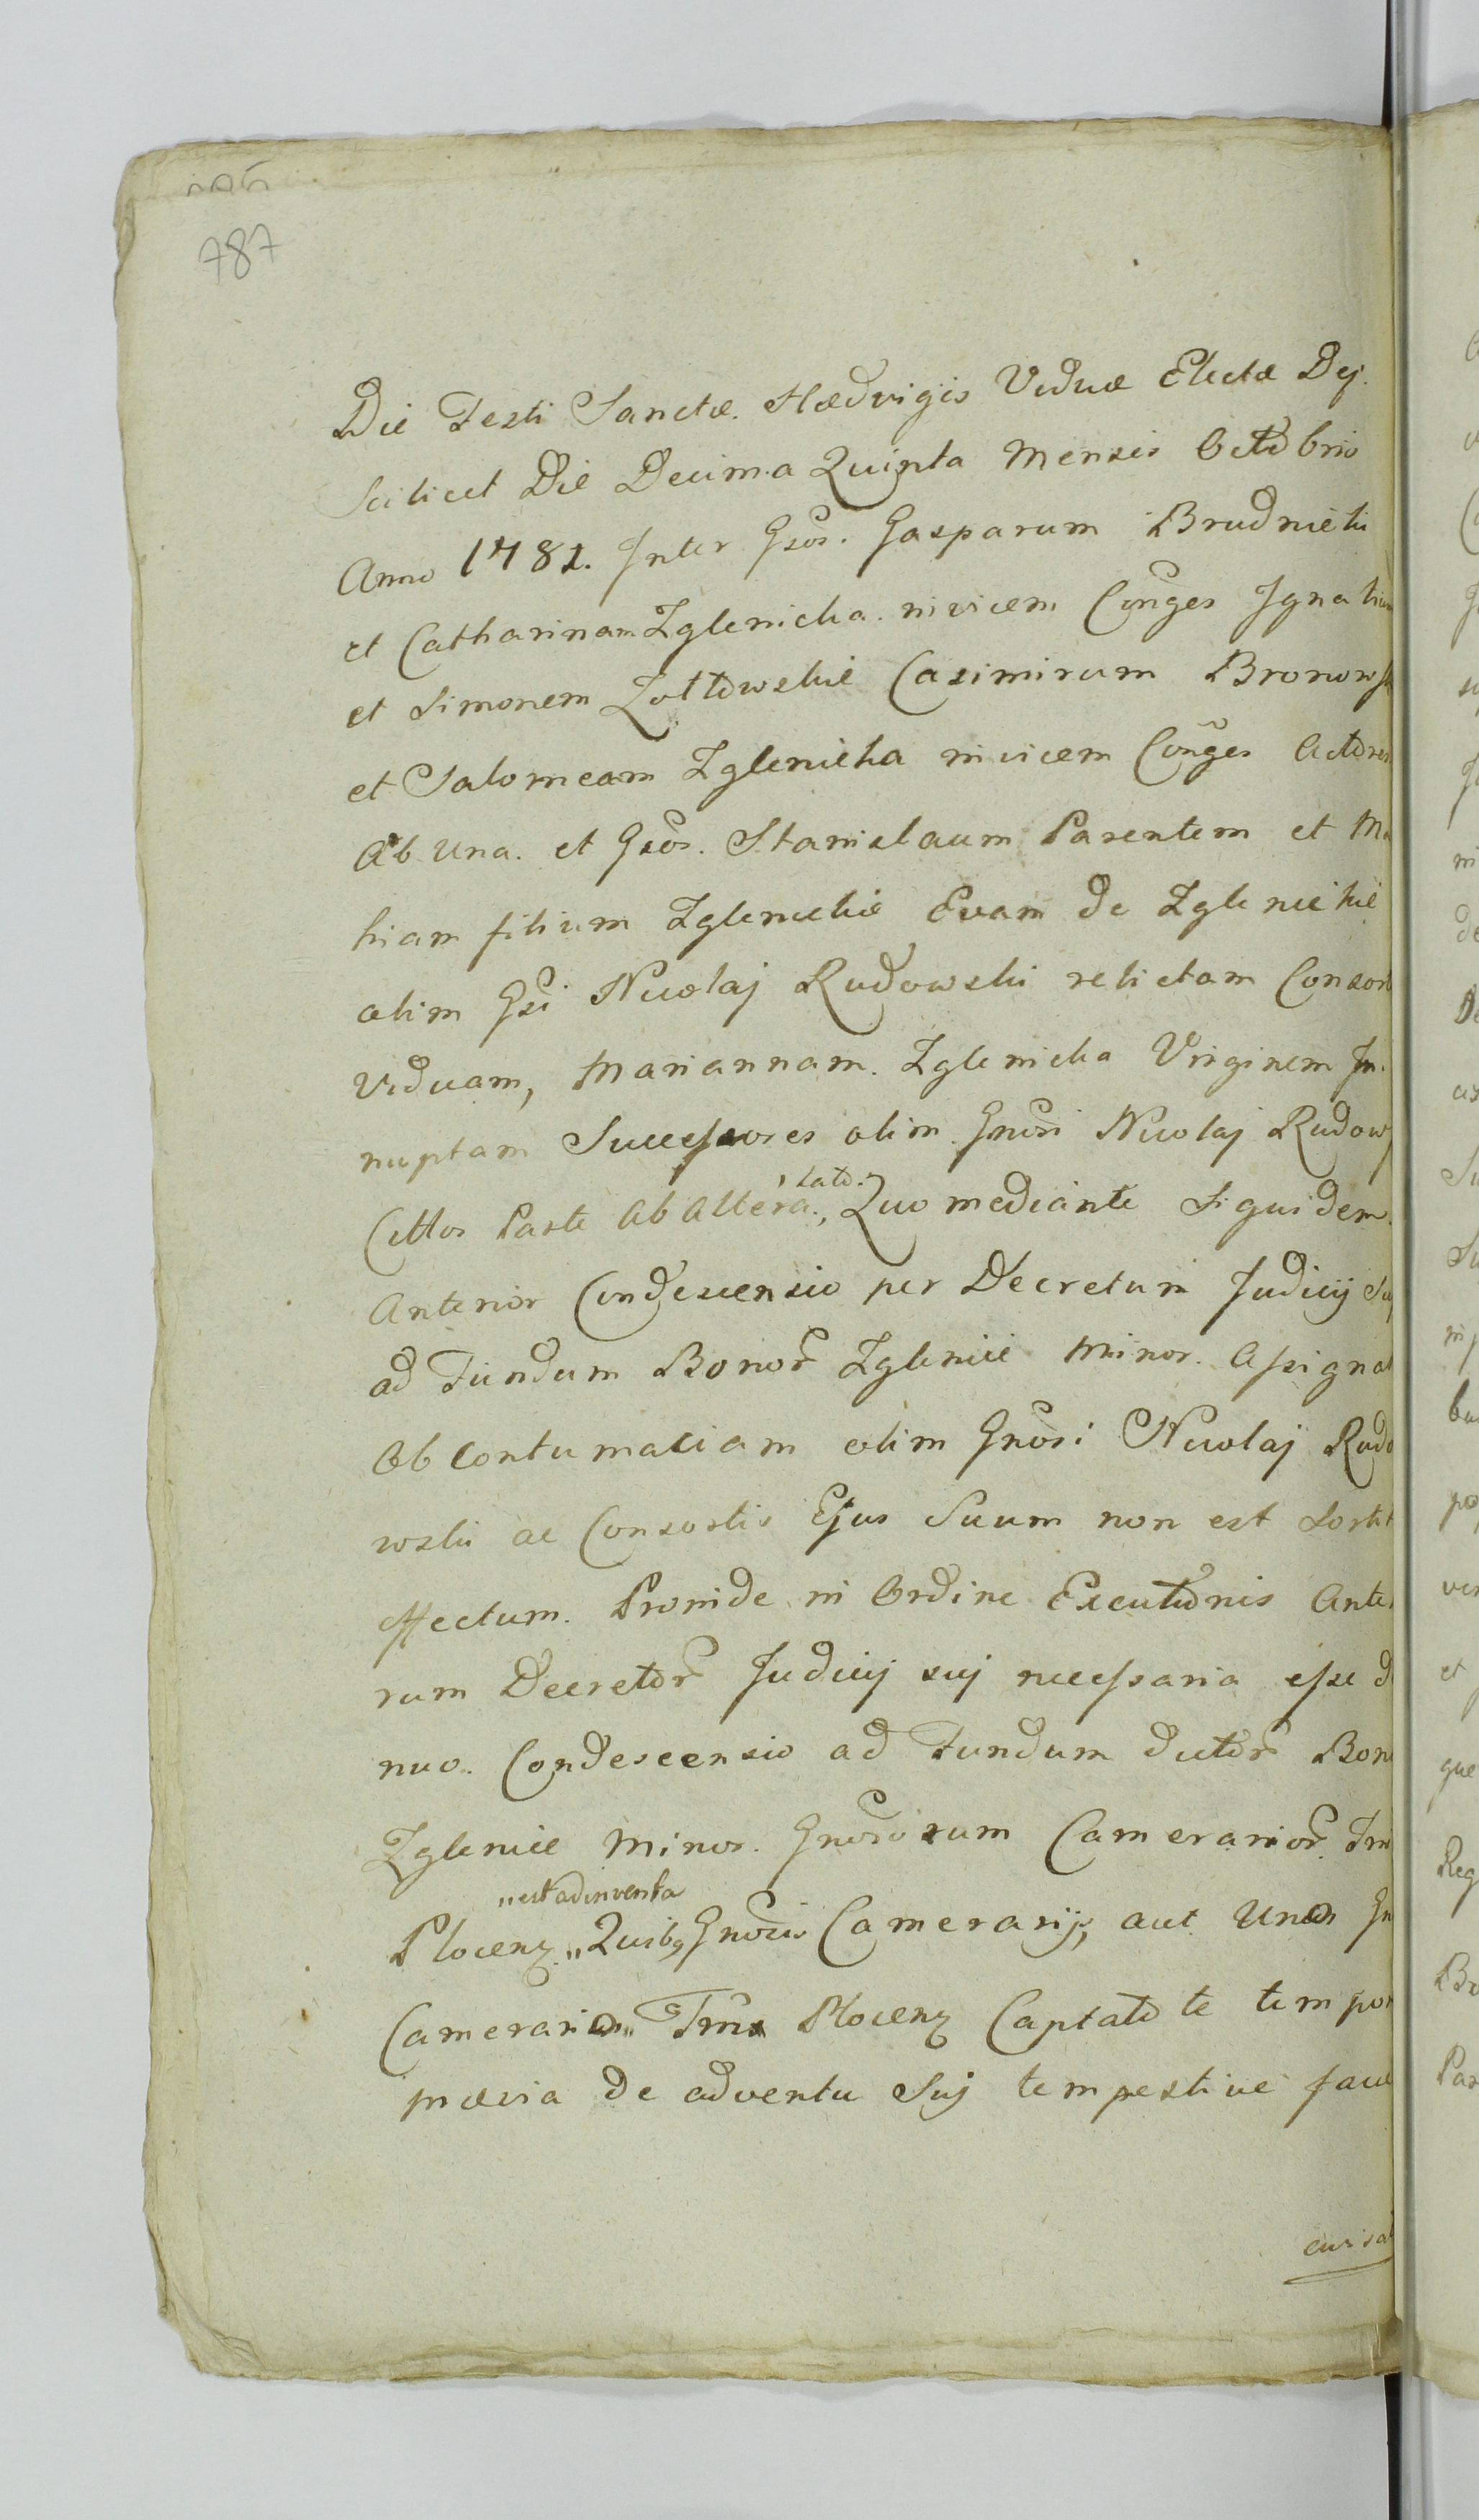 787
Die Festi Sanctæ. Hædvigis Viduæ Electæ Dej.
Scilicet Die Decima Quinta Mensis Octobris
Anno 1781. Inter Gsos. Gasparum Brudnicki
et Catharinam Zglenicka. invicem Conges Ignatium
et Simonem Zołtowskie Casimirum Bronows
et Salomeam Zglenicka invicem Conges Actores
Ab Una. et Gsos. Stanislaum Parentem et Ma
hiam filium Zglenickie Evam de Zglenickie
olim Gsi Nicolaj Rudowski relictam Consort
Viduam, Mariannam. Zglenicka Virginem In.
nuptam Successores olim Gnosi Nicolaj Rudows
Cittos Parte Ab Altera., Lato. Quo mediante Siquidem.
Anterior Condescensio per Decretum Judicij Suj
ad Fundum Bonor Zglenice Minor. Assignat
Ob Contumaciam olim Gnosi Nicolaj Rudo
wski ac Consortis Ejus Suum non est Sortit
effectum. Proinde in Ordine Executionis Ante
rum Decretor Judicij suj necessaria esse d
nuo. Condescensio ad Fundum dictor Bon
Zglenice Minor. Gnosorum Camerarior. Trri
"est adinventa
Plocens. " Quibq Gnosis Camerarijs, aut Unus Gn
Camerarius" Trris Plocens Captato te tempor
prævia de adventu Suj tempestive faci